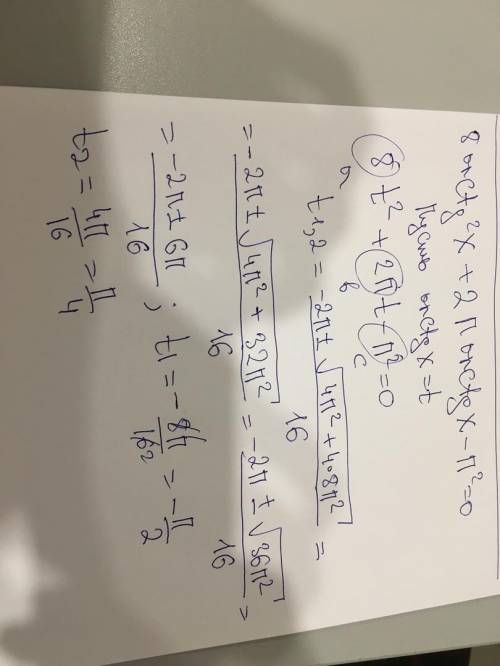 8 arctg²x + 2π arctgx - π² = 0
Пусть arctgx = t
8t² + 2πt - π² = 0
a в c
t1,2 = -2π ± √4π² + 4·8π² / 16 =
= -2π ± √4π² + 32π² / 16 = -2π ± √36π² / 16 =
= -2π ± 6π / 16 ; t1 = -8π / 16 2 = -π / 2
t2 = 4π / 16 = π / 4